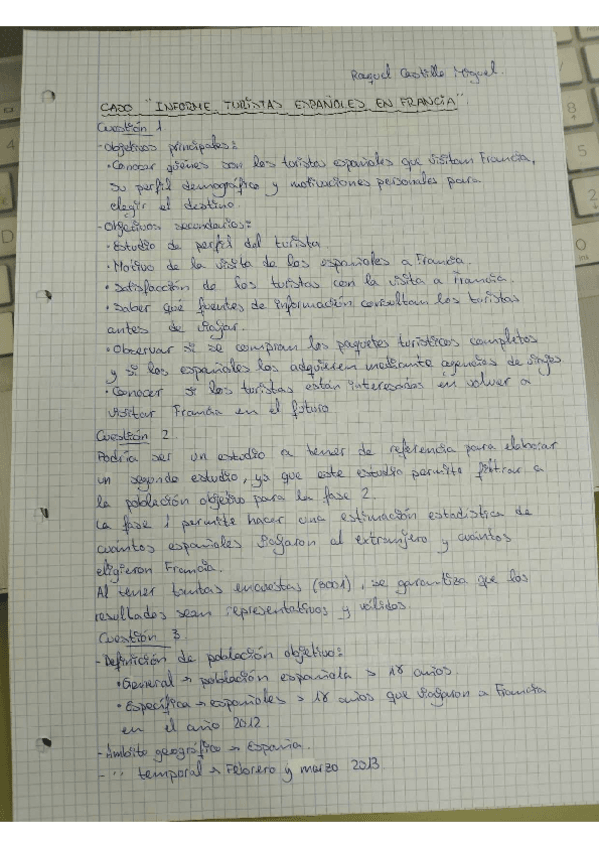 Raquel Castillo Miguel.
CASO "INFORME TURISTAS ESPAÑOLES EN FRANCIA".
Cuestión 1
- Objetivos principales:
• Conocer quiénes son los turistas españoles que visitan Francia,
su perfil demográfico y motivaciones personales para
elegir el destino.
- Objetivos secundarios:
• Estudio de perfil del turista.
• Motivo de la visita de los españoles a Francia.
• Satisfacción de los turistas con la visita a Francia.
• Saber qué fuentes de información consultan los turistas
antes de viajar.
• Observar si se compran los paquetes turísticos completos
y si los españoles los adquieren mediante agencias de viajes.
• Conocer si los turistas están interesados en volver a
visitar Francia en el futuro
Cuestión 2.
Podría ser un estudio a tener de referencia para elaborar
un segundo estudio, ya que este estudio permite filtrar a
la población objetivo para la fase 2.
La fase 1 permite hacer una estimación estadística de
cuántos españoles viajaron al extranjero y cuántos
eligieron Francia.
Al tener tantas encuestas (8001), se garantiza que los
resultados sean representativos y válidos.
Cuestión 3.
- Definición de población objetivo:
• General → población española > 18 años.
• Específica → españoles > 18 años que viajaron a Francia
en el año 2012.
- Ámbito geográfico → España.
- " temporal → Febrero y marzo 2013.